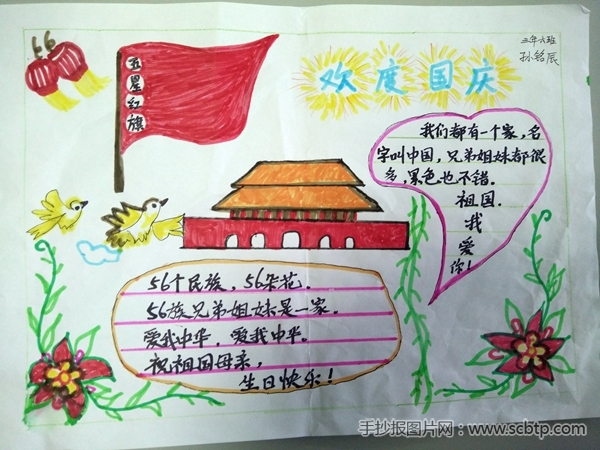 三年六班
孙铭辰
五星红旗
欢度国庆
我们都有一个家,名
字叫中国,兄弟姐妹都很
多,黑色也不错.
祖国.
我
爱
你!
56个民族,56朵花.
56族兄弟姐妹是一家.
爱我中华,爱我中华.
祝祖国母亲,
生日快乐!
手抄报图片网:www.scbtp.com